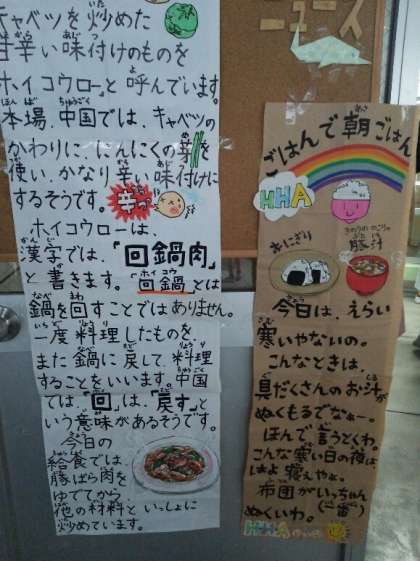 ニュース
キャベツを炒めた
甘辛い味付けのものを
ホイコウローと呼んでいます。
本場、中国では、キャベツの
かわりに、にんにくの芽を
使い、かなり辛い味付けに
するそうです。
ホイコウローは、
漢字では、「回鍋肉」
と書きます。「回鍋」とは
鍋を回すことではありません。
一度料理したものを
また鍋に戻して、料理
することをいいます。中国
では「回」は、「戻す」と
いう意味があるそうです。
今日の
給食では、
豚ばら肉を
ゆでてから、
他の材料といっしょに
炒めています。
ごはんで朝ごはん
HHA
おにぎり
豚汁
今日は、えらい
寒いやないの。
こんなときは、
具だくさんのお汁が
ぬくもるでなぁー。
ほんで、言うとくわ。
こんな寒い日の夜は、
はよ寝えやぁ。
布団がいっちゃん
(一番)
ぬくいわ。
HHA